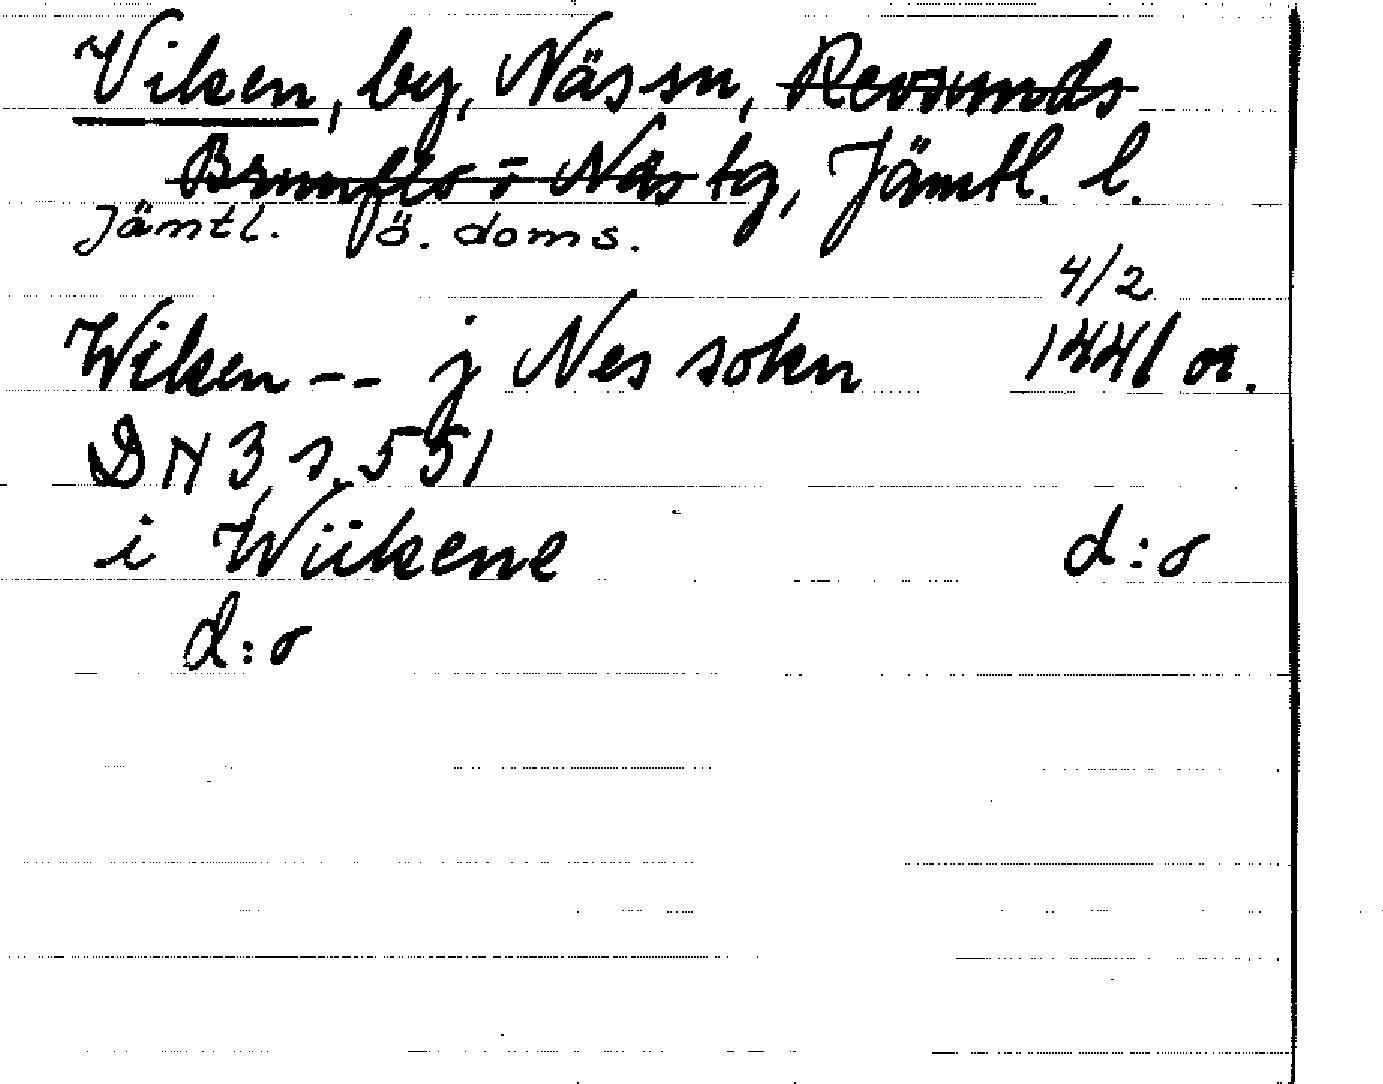 Viken, by, Näs sn, Revsunds
Brunflo o Näs tg, Jämtl. l.
Jämtl. ö. doms.
4/2
Wiken -- j Nes sokn 1441 or.
DN 3 s. 551
i Wiikene d:o
d:o